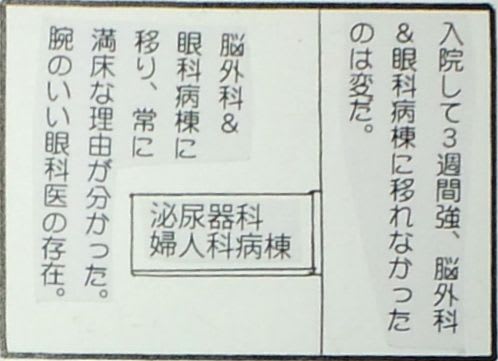 入院して3週間強、脳外科
&眼科病棟に移れなかった
のは変だ。
脳外科&
眼科病棟に
移り、常に
満床な理由が分かった。
腕のいい眼科医の存在。
泌尿器科
婦人科病棟